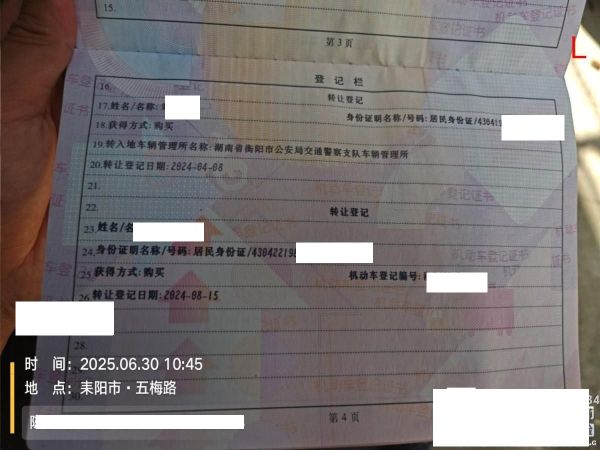 15.
第 3 页
登 记 栏
16.
转让登记
17.姓名/名称:
身份证明名称/号码:居民身份证/43041
18.获得方式:购买
19.转入地车辆管理所名称:湖南省衡阳市公安局交通警察支队车辆管理所
20.转让登记日期:2024-04-08
21.
22.
转让登记
23.姓名/名
24.身份证明名称/号码:居民身份证/43042219
25.获得方式:购买
机动车登记编号:
26.转让登记日期:2024-08-15
28.
时 间: 2025.06.30 10:45
地 点: 耒阳市·五梅路
第 4 页